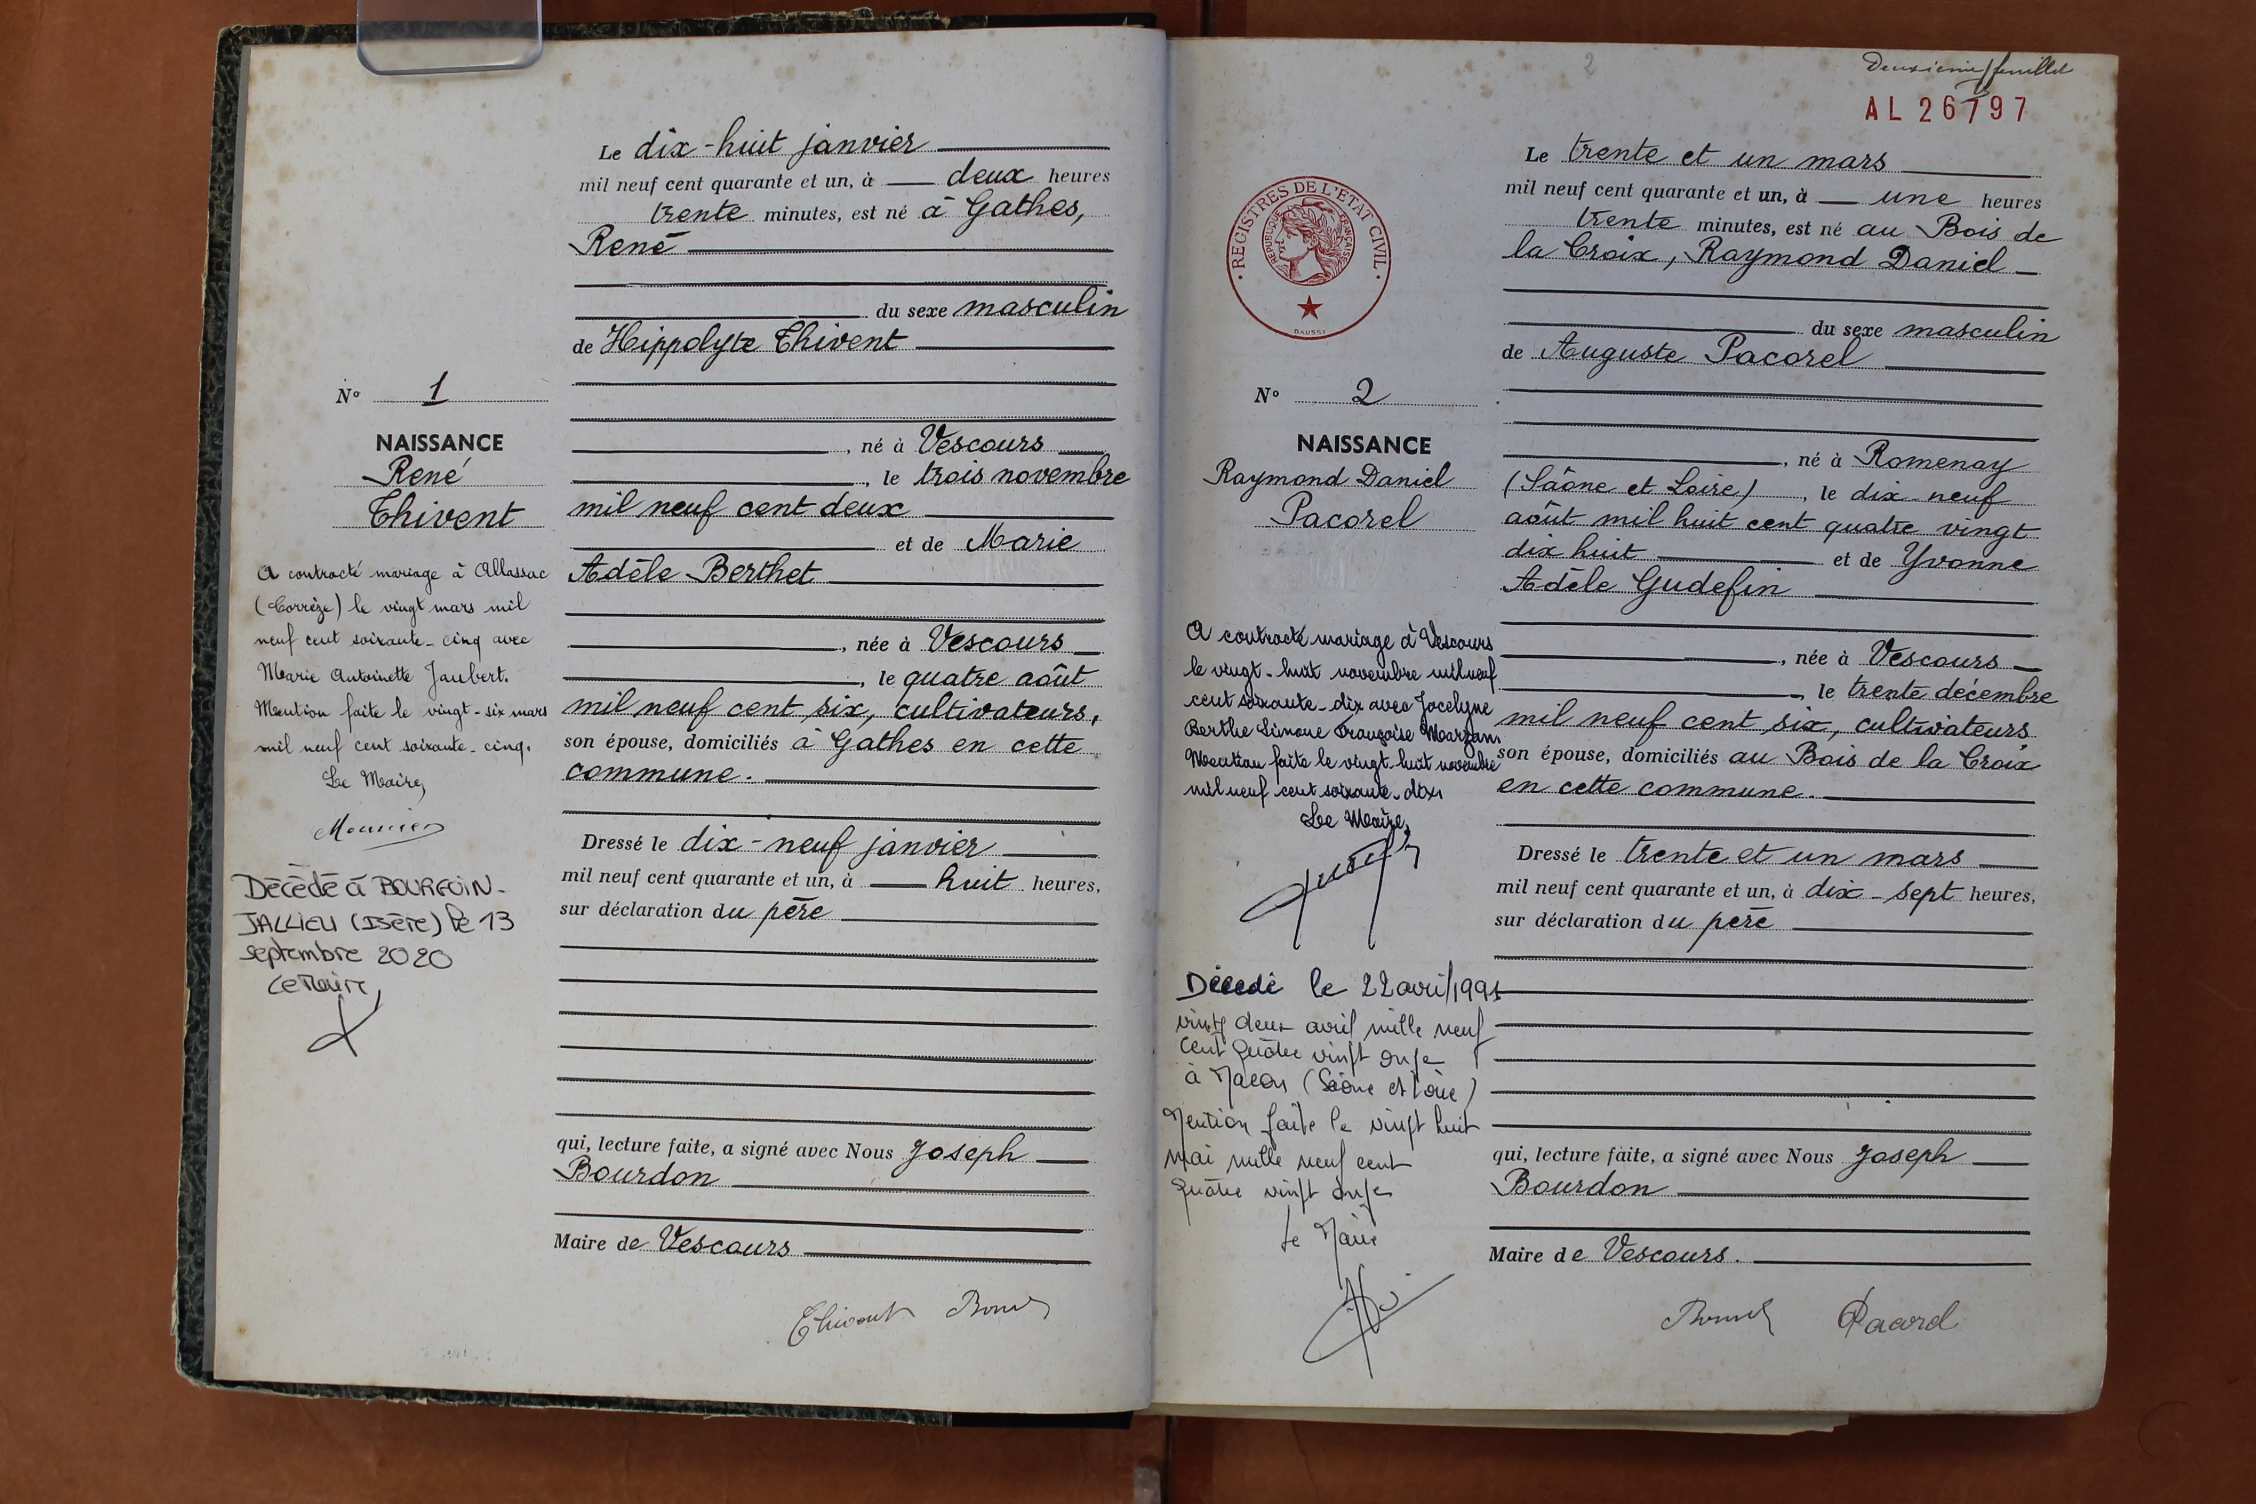 Le dix-huit janvier
mil neuf cent quarante et un, à deux heures
trente minutes, est né à Gathes,
René
du sexe masculin
de Hippolyte Thivent
né à Vescours
, le trois novembre
mil neuf cent deux
et de Marie
Adèle Berthet
, née à Vescours
, le quatre août
mil neuf cent six, cultivateurs,
son épouse, domiciliés à Gathes en cette
commune.
Dressé le dix-neuf janvier
mil neuf cent quarante et un, à huit heures,
sur déclaration du père
qui, lecture faite, a signé avec Nous Joseph
Bourdon
Maire de Vescours
Thivent
N° 1
NAISSANCE
René
Thivent
A contracté mariage à Allassac
(Corrèze) le vingt mars mil
neuf cent soixante-cinq avec
Marie Antoinette Jaubert.
Mention faite le vingt-six mars
mil neuf cent soixante-cinq.
Le Maire,
Décédé à BOURGOIN-
JALLIEU (Isère) le 13
septembre 2020
Le Maire,
2
Deuxième feuillet
AL 26797
REGISTRES DE L'ETAT CIVIL
REPUBLIQUE FRANÇAISE
DAUSSY
Le trente et un mars
mil neuf cent quarante et un, à une heures
trente minutes, est né au Bois de
la Croix, Raymond Daniel
du sexe masculin
de Auguste Pacorel
, né à Romenay
(Saône et Loire) , le dix-neuf
août mil huit cent quatre vingt
dix huit et de Yvonne
Adèle Gudefin
, née à Vescours
, le trente décembre
mil neuf cent six, cultivateurs
son épouse, domiciliés au Bois de la Croix
en cette commune.
Dressé le trente et un mars
mil neuf cent quarante et un, à dix-sept heures,
sur déclaration du père
qui, lecture faite, a signé avec Nous Joseph
Bourdon
Maire de Vescours.
Pacorel
N° 2
NAISSANCE
Raymond Daniel
Pacorel
A contracté mariage à Vescours
le vingt-huit novembre mil neuf
cent soixante-dix avec Jocelyne
Berthe Simone Françoise
Mention faite le vingt-huit novembre
mil neuf cent soixante-dix.
Le Maire,
Décédé le 22 avril 1991
vingt deux avril mille neuf
cent quatre vingt onze
à Macon (Saône et Loire)
Mention faite le vingt huit
mai mille neuf cent
quatre vingt onze
Le Maire